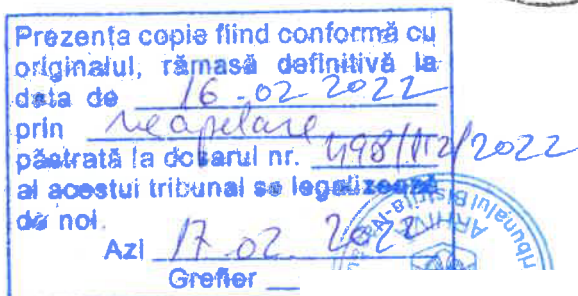 Prezenta copie fiind conformă cu
originalul, rămasă definitivă la
data de 16-02 2022
prin neapelare
păstrată la dosarul nr. 498/112/2022
al acestui tribunal se legalizează
de noi.
Azi 17.02. 2022
Grefier
Tribunalul Bistrița-N
ARHIV